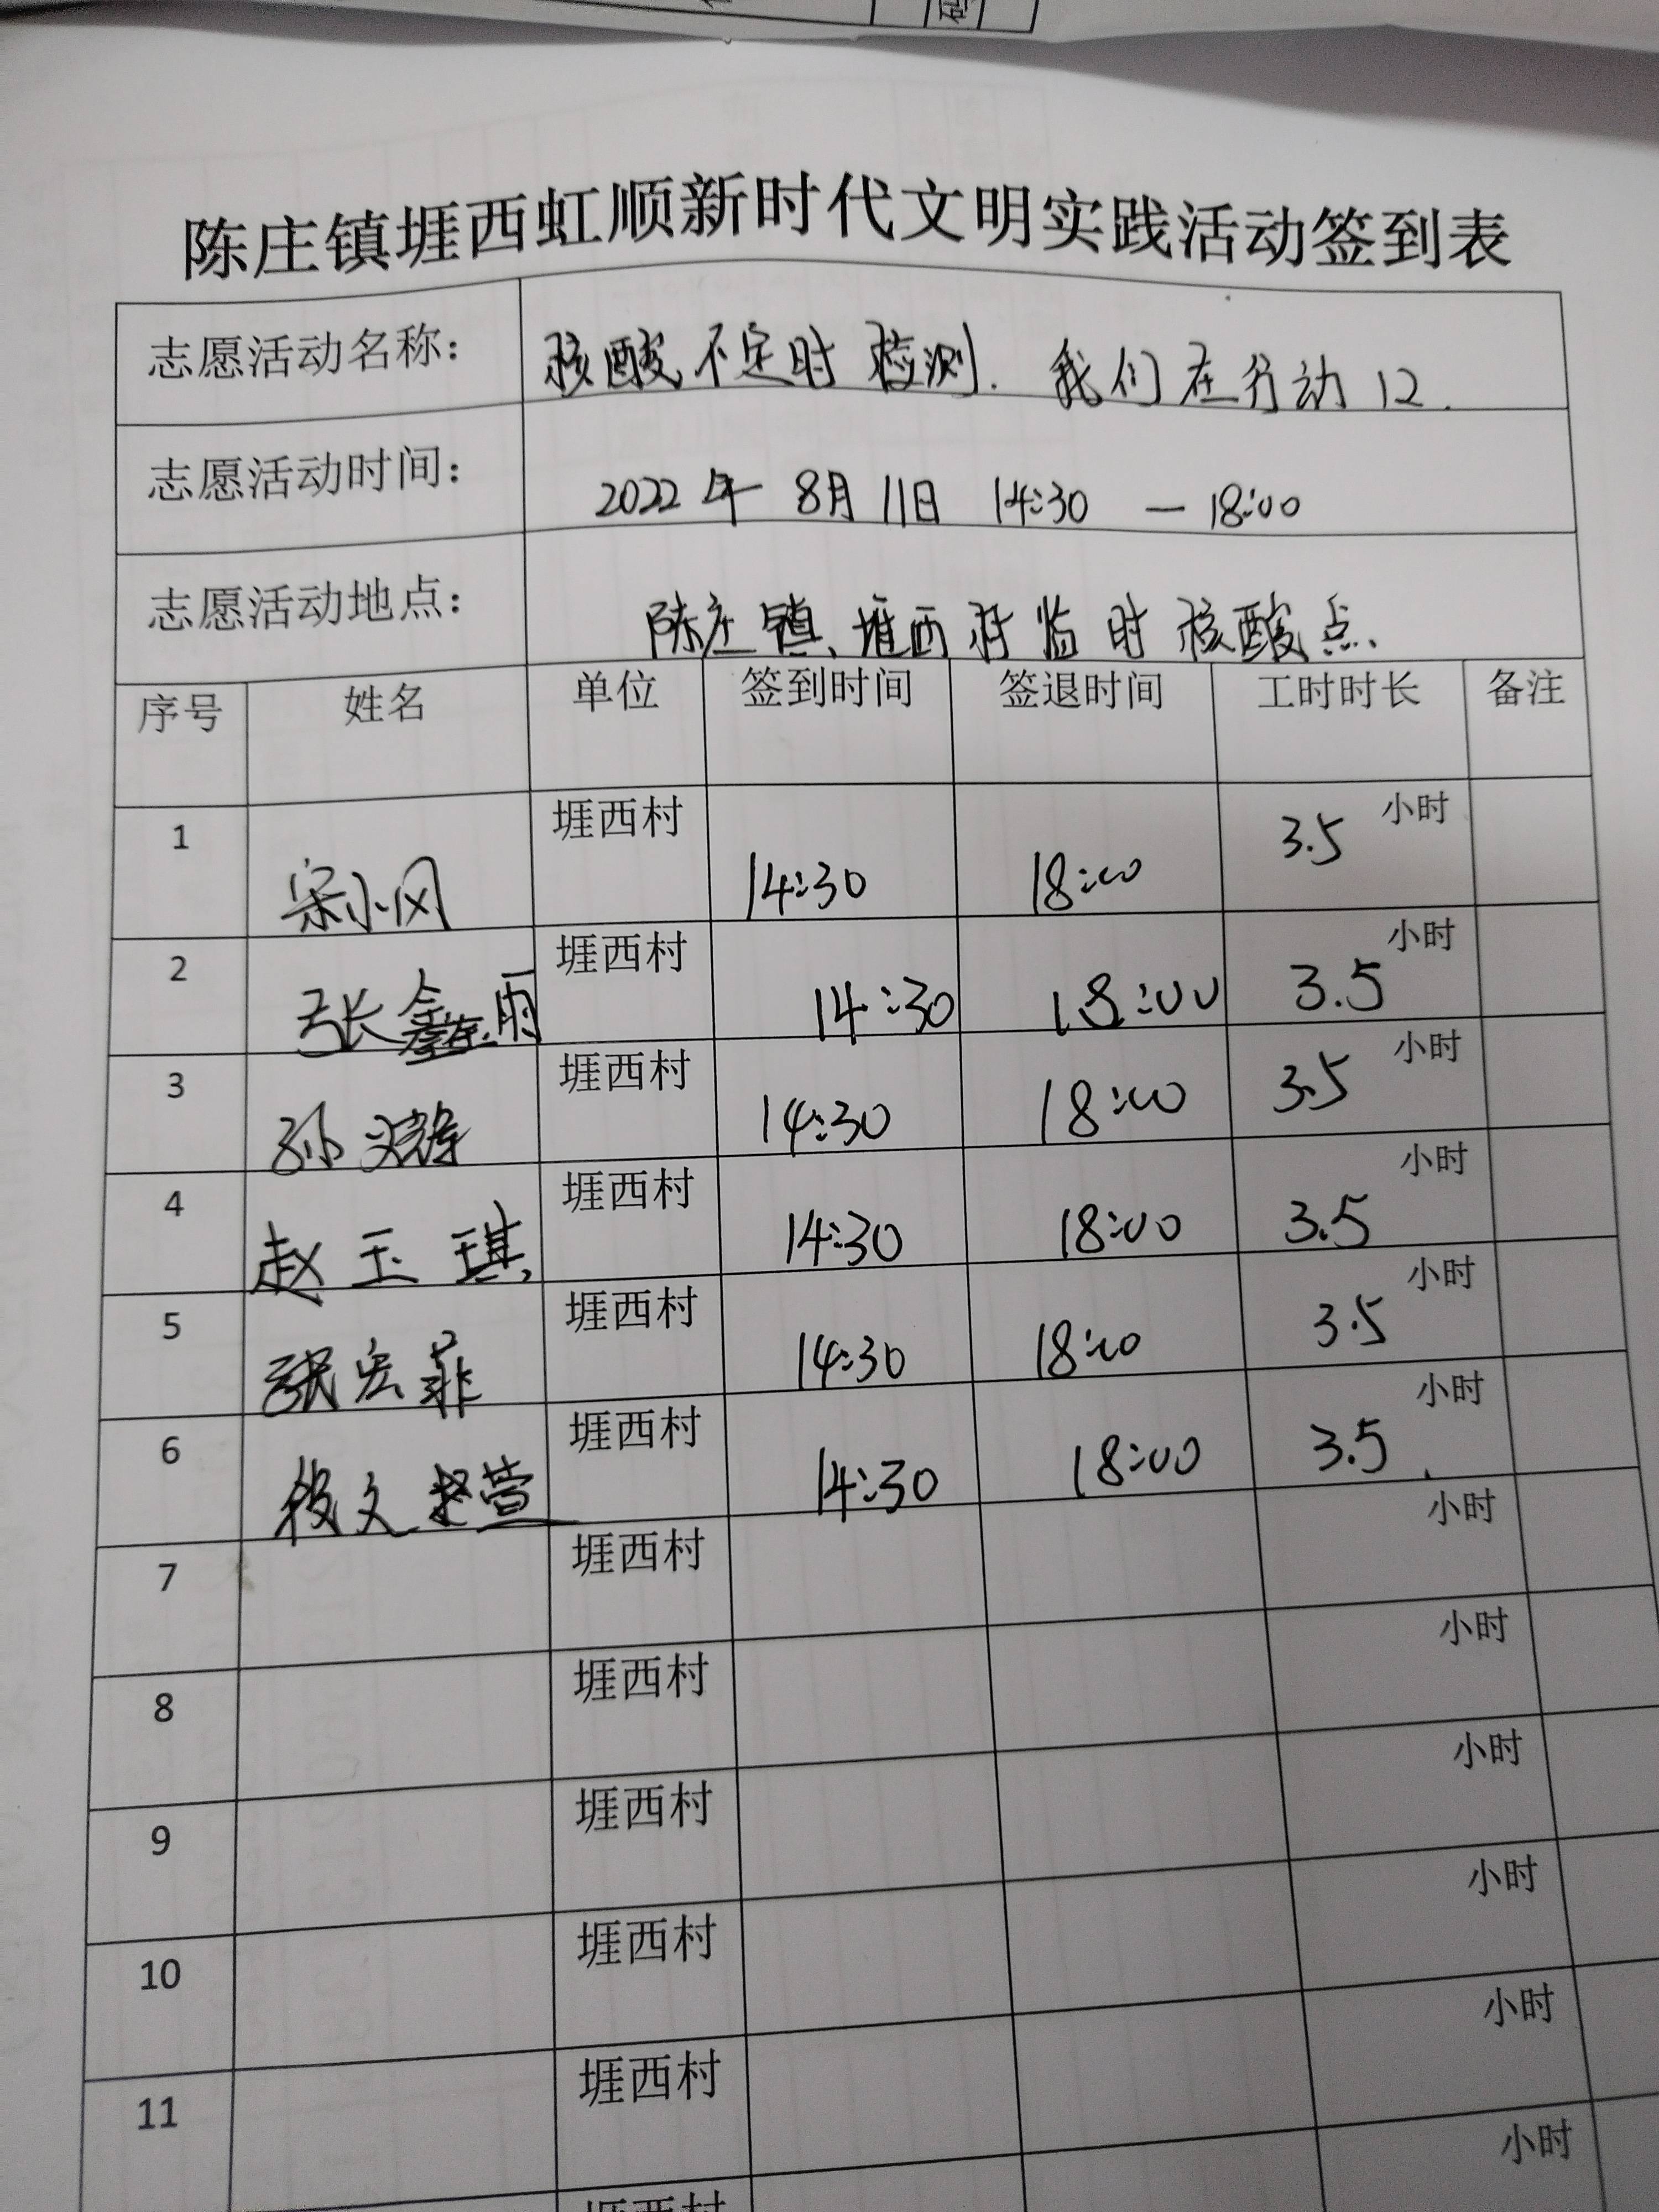 陈庄镇堐西虹顺新时代文明实践活动签到表
志愿活动名称： 核酸不定时检测. 我们在行动12.
志愿活动时间： 2022年 8月11日 14:30 — 18:00
志愿活动地点： 陈庄镇、堐西村临时核酸点、
序号 姓名 单位 签到时间 签退时间 工时时长 备注
1 宋小风 堐西村 14:30 18:00 3.5 小时
2 张鑫雨 堐西村 14:30 18:00 3.5 小时
3 孙 堐西村 14:30 18:00 3.5 小时
4 赵玉琪 堐西村 14:30 18:00 3.5 小时
5 张宏菲 堐西村 14:30 18:00 3.5 小时
6 堐西村 14:30 18:00 3.5 小时
7 堐西村 小时
8 堐西村 小时
9 堐西村 小时
10 堐西村 小时
11 堐西村 小时
堐西村 小时